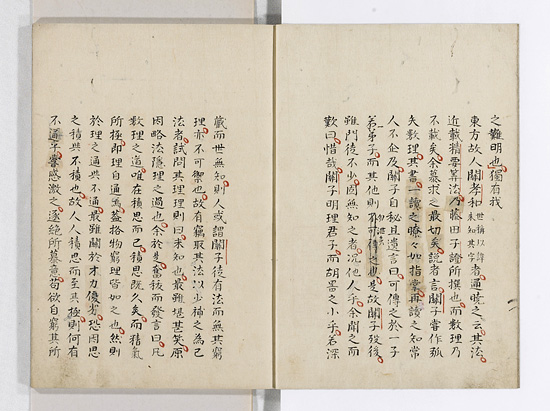 之難明也獨有我
東方故人關孝和世稱以諱未知其字者通曉之云其法
近載精要算法乃藤田子證所撰也而數理乃
不載矣余慕求之最切矣説者言關子嘗作孤
矢數理其書一讀之瞭々如指掌再讀之知常
人不企及關子自秘且遺言曰可傳之於一子
弟弟子而其他則不可傳之也是故關子殁後
雖門徒不少固無知之者況他人乎余聞之而
歎曰惜哉關子明理君子而胡吝之小乎若深
藏而世無知則人或謂關子徒有法而無其窮
理亦不可禦也故有竊取其法以少神之為己
法者試問其理理則曰未知也最雖堪甚笑原
因略法隱理之過也余於是奮而發言曰凡
數理之道唯在積思而已積思既久矣而積氣
所極即理自通焉蓋格物窮理皆如之也然則
於理之通與不通最雖關於才力優劣恐因思
之積與不積也故人人積思而至其極則何有
不通乎響感激之遂絶所慕意苟欲自窮其所